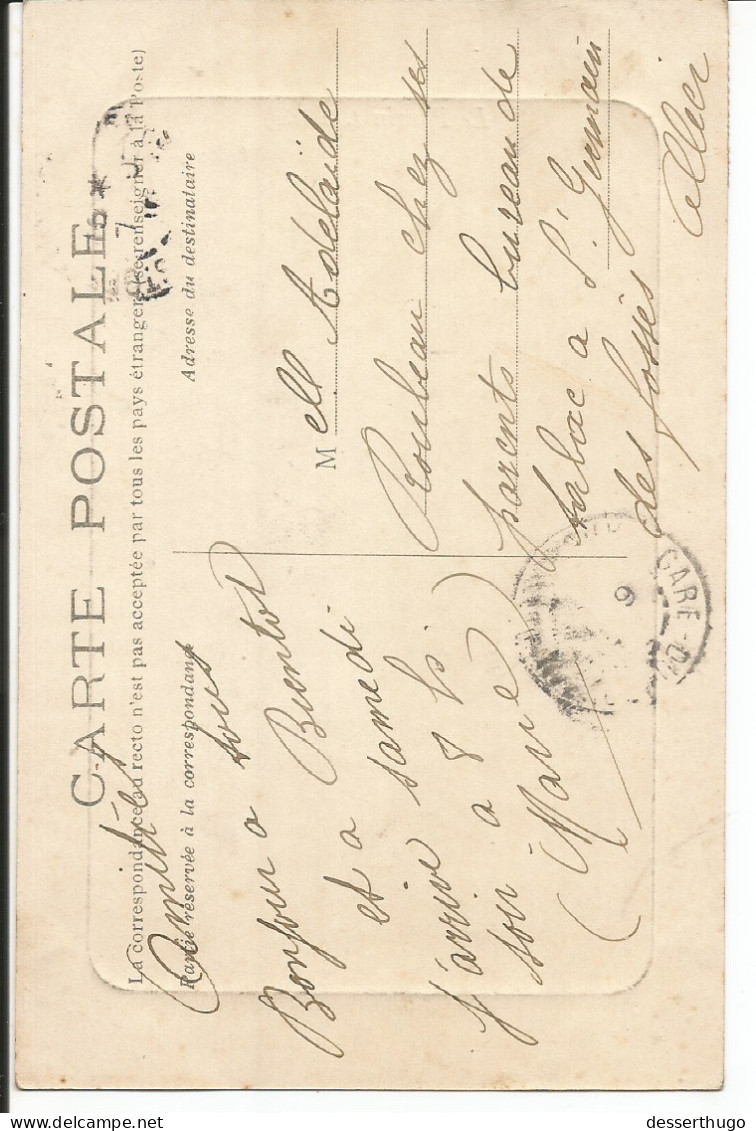 CARTE POSTALE
La correspondance au recto n'est pas acceptée par tous les pays étrangers (se renseigner à la Poste)
Partie réservée à la correspondance
Adresse du destinataire
Amitiés
a tous
Bonjour a Bientot
et a samedi
j'arrive 8 h.
soir a
(Marie)
Mell Adelaide
Roubeau chez ses
parents bureau de
tabac a St. Germain
des fossés
Allier
GARE-D
9
desserthugo